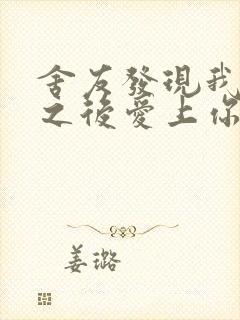 舍友發現我
之後愛上你
姜璐